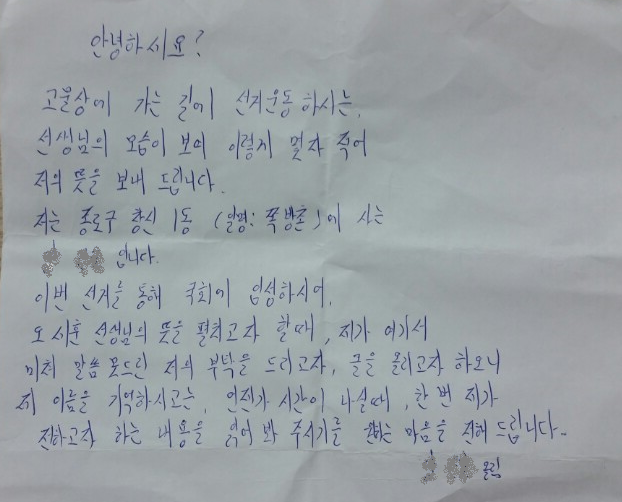 안녕하시요?
고물상에 가는 길에 선거운동 하시는,
선생님의 모습이 보여 이렇게 몇자 적어
저의 뜻을 보내 드립니다.
저는 종로구 창신 1동 (일명: 쪽방촌)에 사는
입니다.
이번 선거를 통해 국회에 입성하시어,
오시훈 선생님의 뜻을 펼치고자 할때, 제가 여기서
미처 말씀 못드린 저의 부탁을 드리고자, 글을 올리고자 하오니
제 이름을 기억하시고는, 언젠가 시간이 나실때, 한번 제가
전하고자 하는 내용을 읽어 봐 주시기를 원하는 마음을 전해 드립니다..
올림